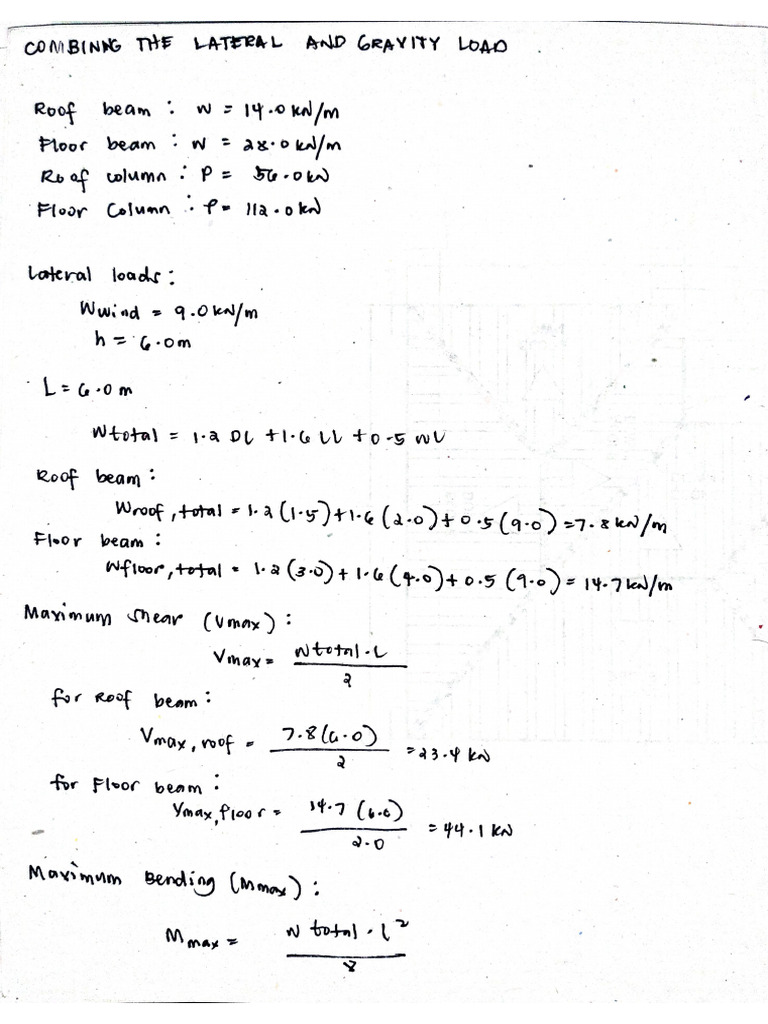 COMBINNG THE LATERAL AND GRAVITY LOAD
Roof beam : W = 14.0 kN/m
Floor beam : W = 28.0 kN/m
Roof column : P = 56.0 kN
Floor Column : P = 112.0 kN
Lateral loads :
Wwind = 9.0 kN/m
h = 6.0m
L = 6.0 m
Wtotal = 1.2 DL + 1.6 LL + 0.5 WL
Roof beam :
Wroof, total = 1.2 (1.5) + 1.6 (2.0) + 0.5 (9.0) = 7.8 kN/m
Floor beam :
Wfloor, total = 1.2 (3.0) + 1.6 (4.0) + 0.5 (9.0) = 14.7 kN/m
Maximum shear (Vmax) :
Vmax = Wtotal . L / 2
for Roof beam :
Vmax, roof = 7.8 (6.0) / 2 = 23.4 kN
for Floor beam :
Vmax, floor = 14.7 (6.0) / 2.0 = 44.1 kN
Maximum Bending (Mmax) :
Mmax = W total . L² / 8